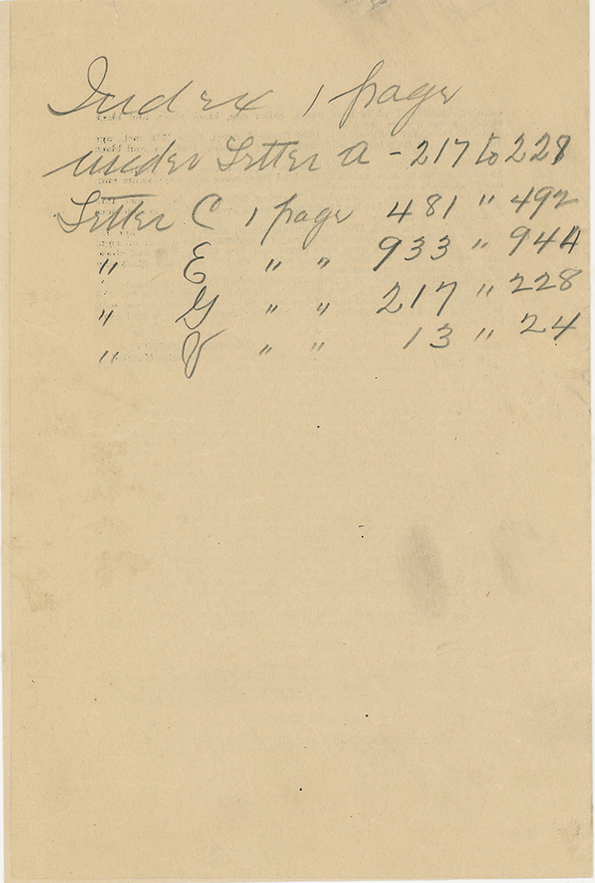 Index 1 page
under Letter A - 217 to 228
Letter C 1 page 481 " 492
" E " " 933 " 944
" G " " 217 " 228
" V " " 13 " 24